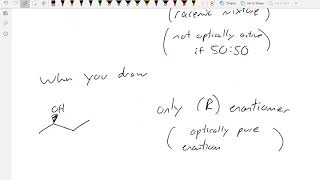 (racemic mixture)
(not optically active
if 50:50)
When you draw
OH
only (R) enantiomer
(optically pure
enantiom